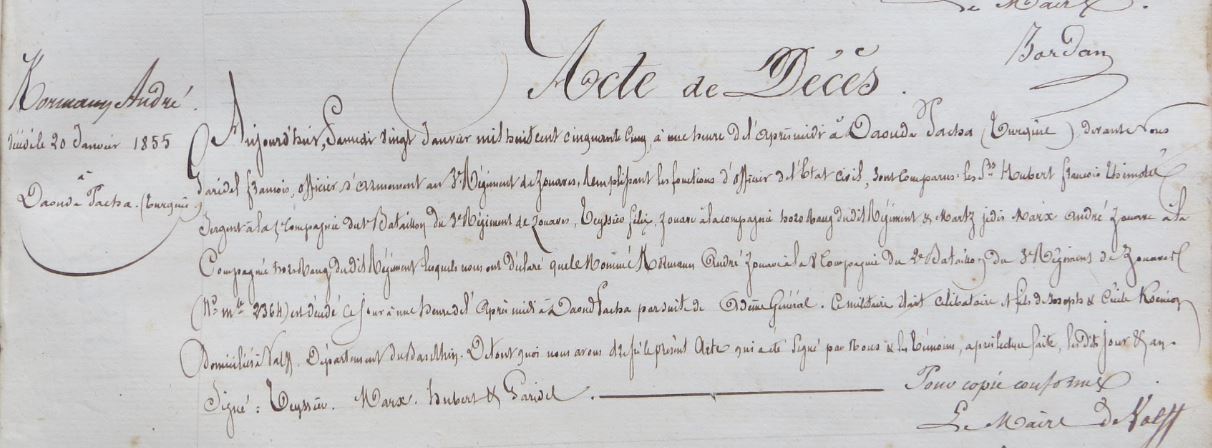 Le Maire.
Bordan
Acte de Décès.
Kormann André.
décédé le 20 Janvier 1855
à
Daouda Pacha. (Turquie)
Aujourd'hui, Samedi vingt Janvier mil huit cent cinquante cinq, à une heure de l'après midi à Daouda Pacha (Turquie), devant nous
Garidel François, officier d'armement au 3e Régiment de Zouaves, remplissant les fonctions d'officier de l'Etat civil, sont comparus: les Srs Hubert François
Sergent à la Compagnie du 1er Bataillon du 3e Régiment de Zouaves, Teyssier Félix, Zouave à la compagnie hors rang du dit Régiment & Martz je dis Marx André Zouave à la
Compagnie hors Rang du dit Régiment lesquels nous ont déclaré que le Nommé Kormann André Zouave à la 8 Compagnie du 2e Bataillon du 3e Régiment de Zouaves
(No mle 2364) est décédé ce jour à une heure de l'après midi à Daoud Pacha par suite de Œdème Général. Ce militaire était célibataire et fils de Joseph & Cécile
domiciliés à Valff. Département du Bas Rhin. De tout quoi nous avons dressé le présent Acte qui a été Signé par Nous & les témoins, après lecture faite, les dits jour & an.
Signé: Teyssier. Marx. Hubert & Garidel.
Pour copie conforme
Le Maire de Valff